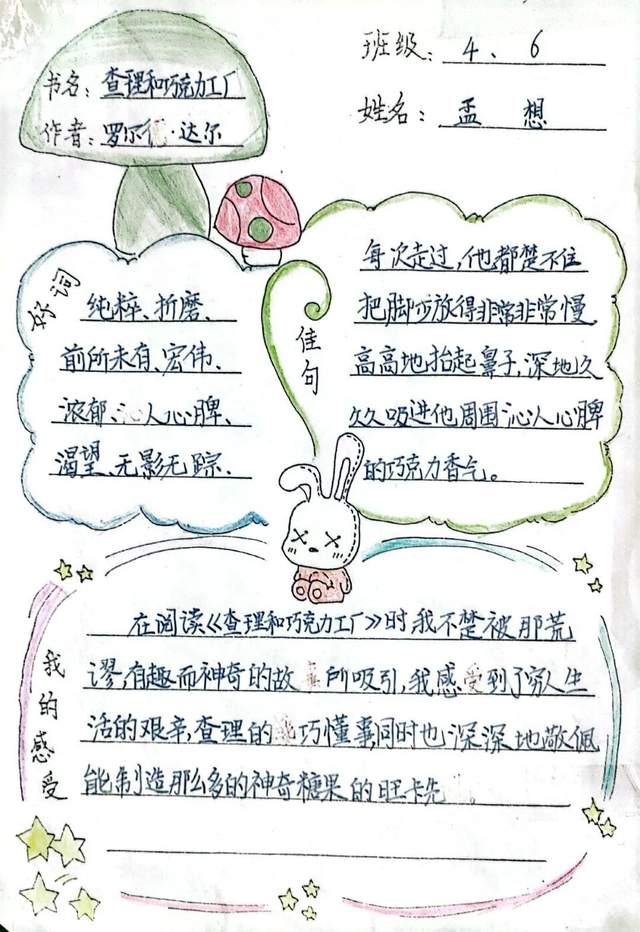 书名：查理和巧克力工厂
作者：罗尔德·达尔
班级：4、6
姓名：孟想
好词
纯粹、折磨、
前所未有、宏伟、
浓郁、沁人心脾、
渴望、无影无踪、
佳句
每次走过,他都楚不住
把脚步放得非常非常慢
高高地抬起鼻子,深地久
久久吸进他周围沁人心脾
的巧克力香气。
我的感受
在阅读《查理和巧克力工厂》时我不楚被那荒
谬,有趣而神奇的故 所吸引,我感受到了穷人生
活的艰辛,查理的 巧懂事,同时也深深地敬佩
能制造那么多的神奇糖果的旺卡先 。